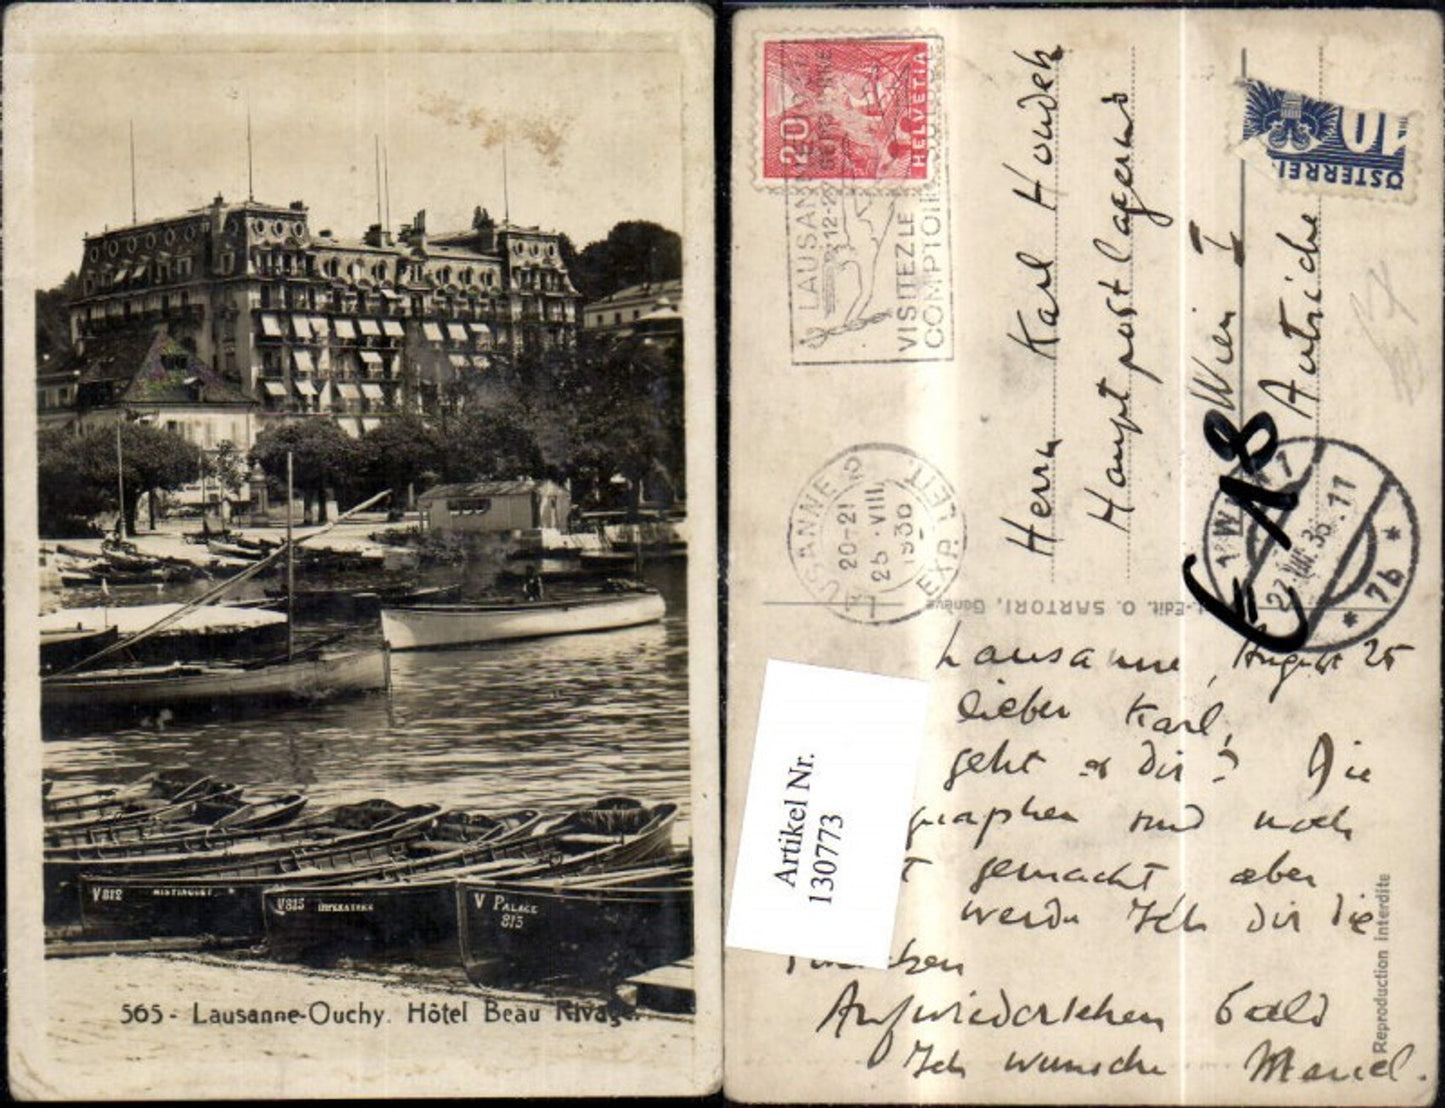 V812
MISTINGUET
V815
IMPERATORE
V PALACE
813
565 - Lausanne-Ouchy. Hôtel Beau Rivage.
20
HELVETIA
LAUSANNE
12-2
VISITEZ LE
COMPTOIR
10
ÖSTERREI
Herrn Karl Houdek
Hauptpostlagernd
Wien I
Autriche
LAUSANNE
20-21
25.VIII
1936
EXP. LETT.
1 WIEN 1
27.VIII.36.11
* 7b *
€ 18
Edit. O. SARTORI, Genève
Lausanne, August 25
lieber Karl,
geht es dir? Die
graphen sind noch
t gemacht aber
werde Ich dir die
Aufwiedersehen bald
Ich wunsche Marcel.
Reproduction interdite
Artikel Nr.
130773